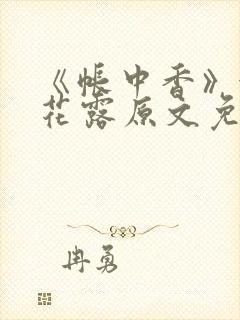 《帐中香》
花露原文免
冉勇